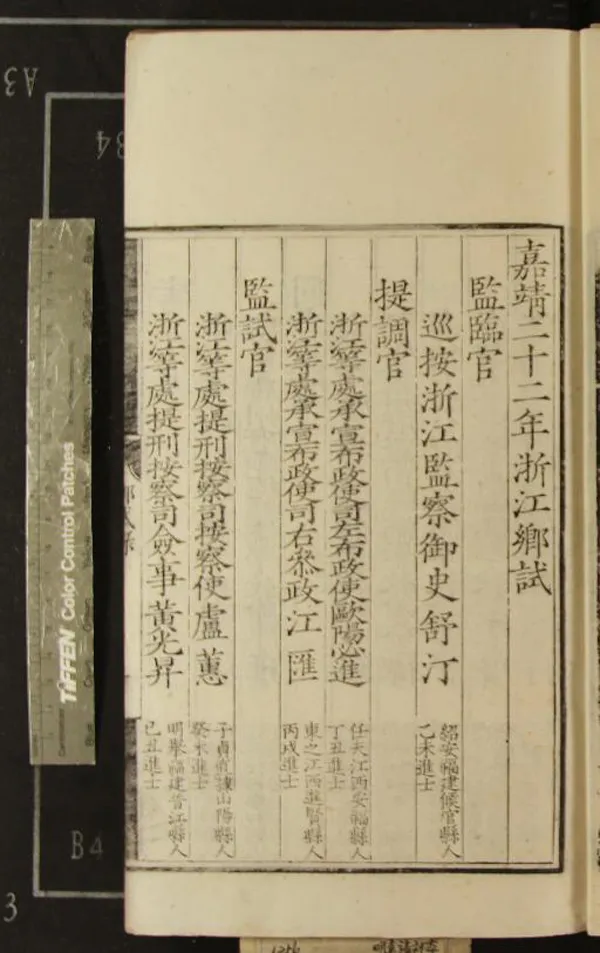 嘉靖二十二年浙江鄉試
監臨官
巡按浙江監察御史舒汀
紹安福建候官縣人
乙未進士
提調官
浙江等處承宣布政使司左布政使歐陽必進
任夫江西安福縣人
丁丑進士
浙江等處承宣布政使司右叅政江匯
東之江西進賢縣人
丙戌進士
監試官
浙江等處提刑按察司按察使盧蕙
子貞直隸山陽縣人
癸未進士
浙江等處提刑按察司僉事黃光昇
明舉福建晋江縣人
己丑進士
A3
B4
TIFFEN Color Control Patches
B4
3